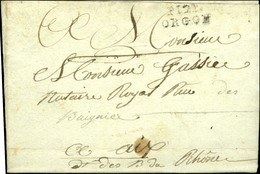 A Monsieur
P.12.P.
ORGON
Monsieur Gassier
Notaire Royal Rue des
a aix
dt des B. du Rhône